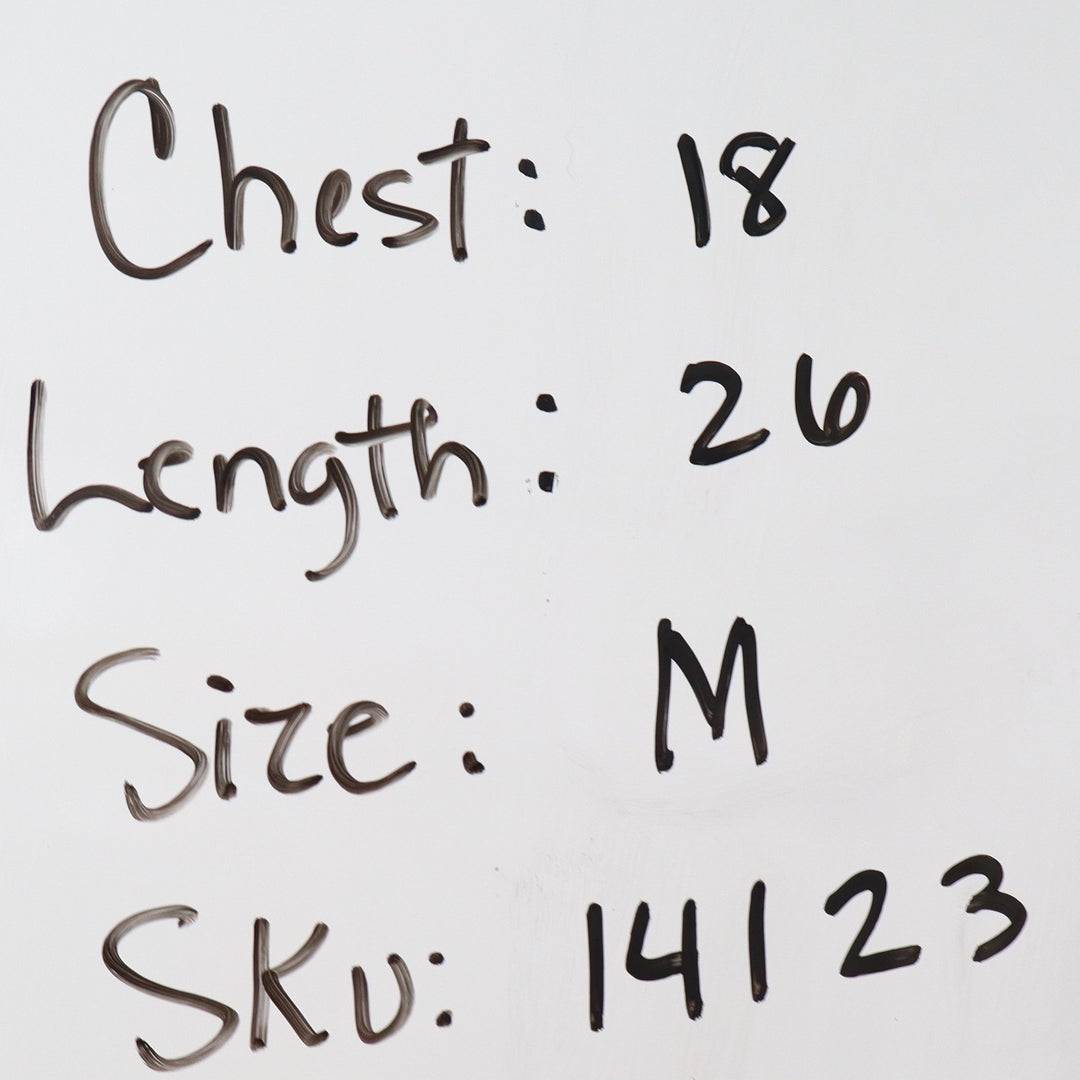 Chest: 18
Length: 26
Size: M
SKU: 14123